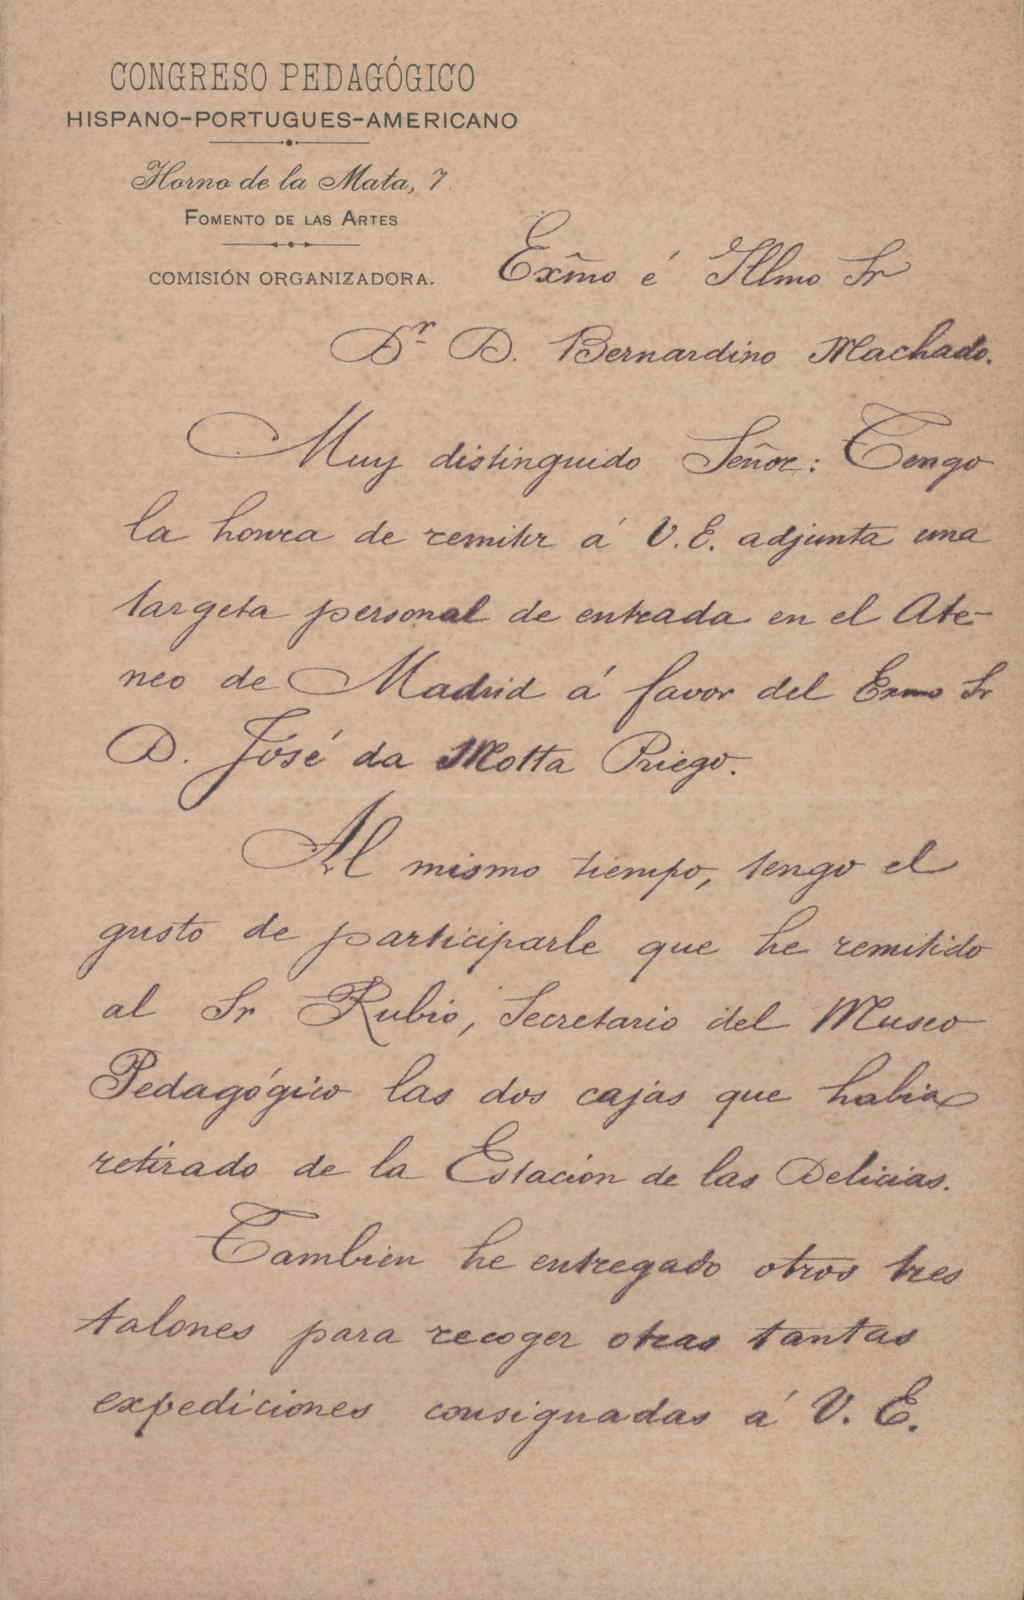 CONGRESO PEDAGÓGICO
HISPANO-PORTUGUES-AMERICANO
Horno de la Mata, 7.
FOMENTO DE LAS ARTES
COMISIÓN ORGANIZADORA.
Exm̃o é Illmo Sr
Dr D. Bernardino Machado.
Muy distinguido Señor: Tengo
la honra de remitir á V. E. adjunta una
targeta personal de entrada en el Ate-
neo de Madrid á favor del Exmo Sr
D. José da Motta Priego.
Al mismo tiempo, tengo el
gusto de participarle que he remitido
al Sr Rubio, Secretario del Museo
Pedagógico las dos cajas que habia
retirado de la Estación de las Delicias.
Tambien he entregado otros tres
talones para recoger otras tantas
expediciones consignadas á V. E.